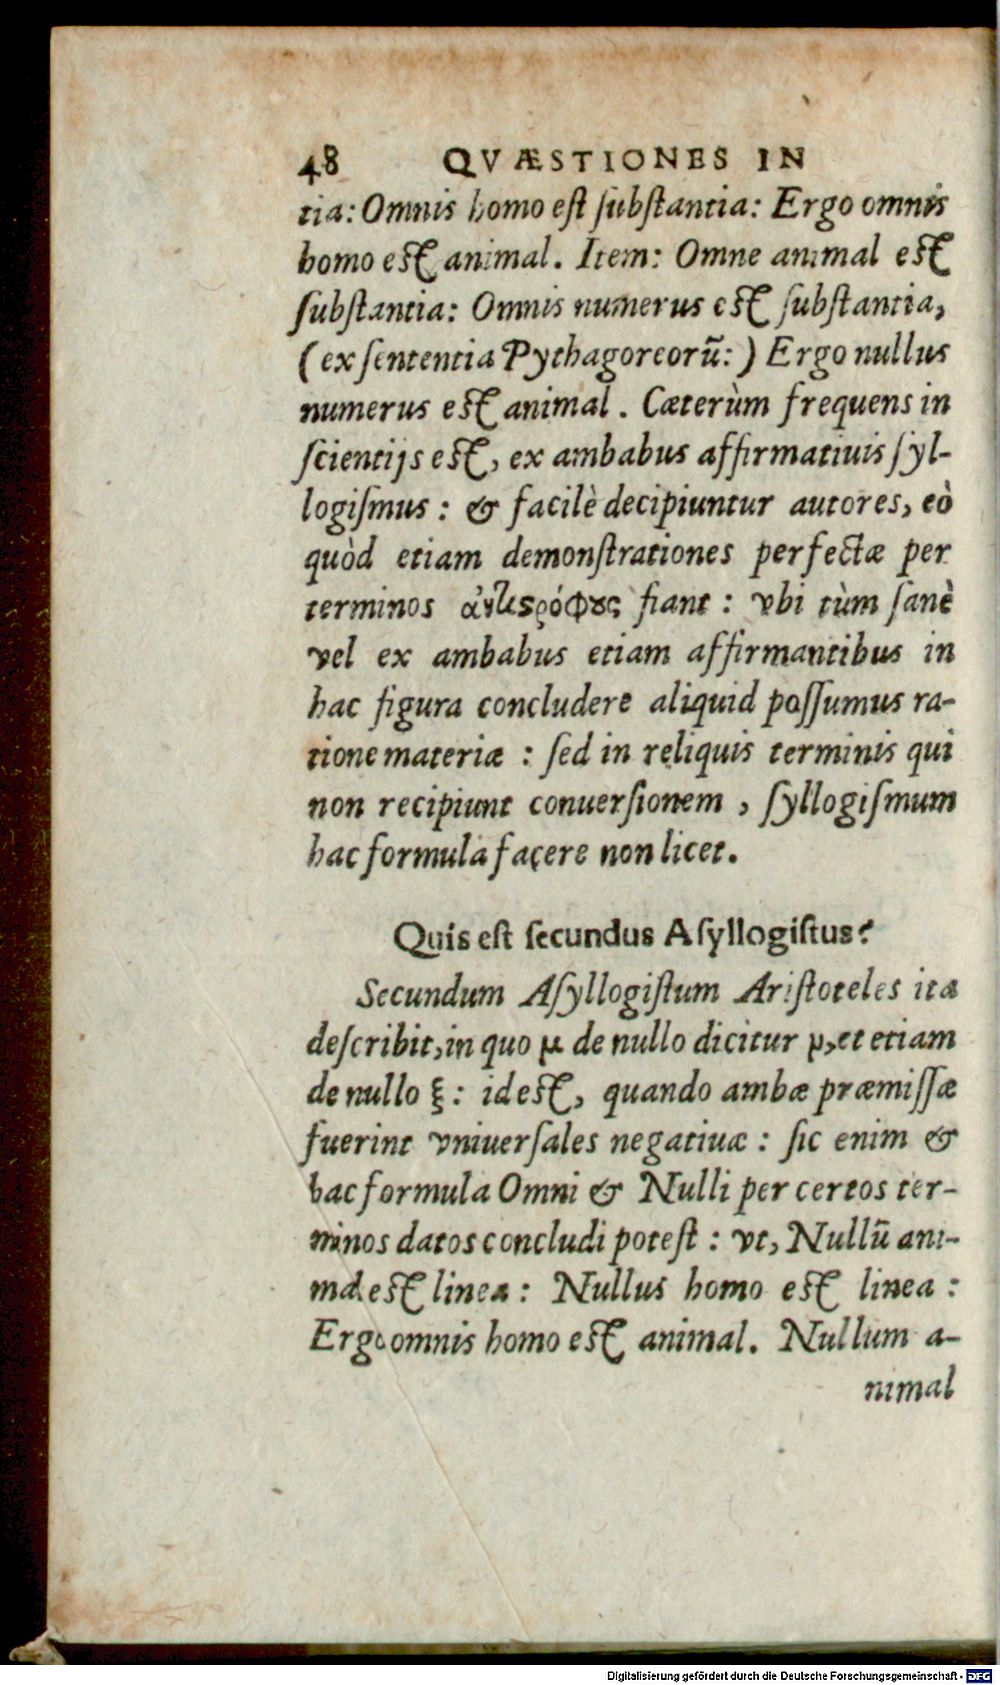 48 QVÆSTIONES IN
tia: Omnis homo est ſubſtantia: Ergo omnis
homo est animal. Item: Omne animal est
ſubſtantia: Omnis numerus est ſubſtantia,
(ex ſententia Pythagoreorū:) Ergo nullus
numerus est animal. Cæterùm frequens in
ſcientijs est, ex ambabus affirmatiuis ſyl-
logiſmus: & facilè decipiuntur autores, eò
quòd etiam demonſtrationes perfectæ per
terminos ἀντιςρόφους fiant: vbi tùm ſanè
vel ex ambabus etiam affirmantibus in
hac figura concludere aliquid poſſumus ra-
tione materiæ: ſed in reliquis terminis qui
non recipiunt conuerſionem, ſyllogiſmum
hac formula facere non licet.
Quis est ſecundus Aſyllogiſtus?
Secundum Aſyllogiſtum Ariſtoteles ita
deſcribit, in quo μ de nullo dicitur ν, et etiam
de nullo ξ: id est, quando ambæ præmiſſæ
fuerint vniuerſales negatiuæ: ſic enim &
hac formula Omni & Nulli per certos ter-
minos datos concludi poteſt: vt, Nullū ani-
mal est linea: Nullus homo est linea:
Ergo omnis homo est animal. Nullum a-
nimal
Digitalisierung gefördert durch die Deutsche Forschungsgemeinschaft - DFG